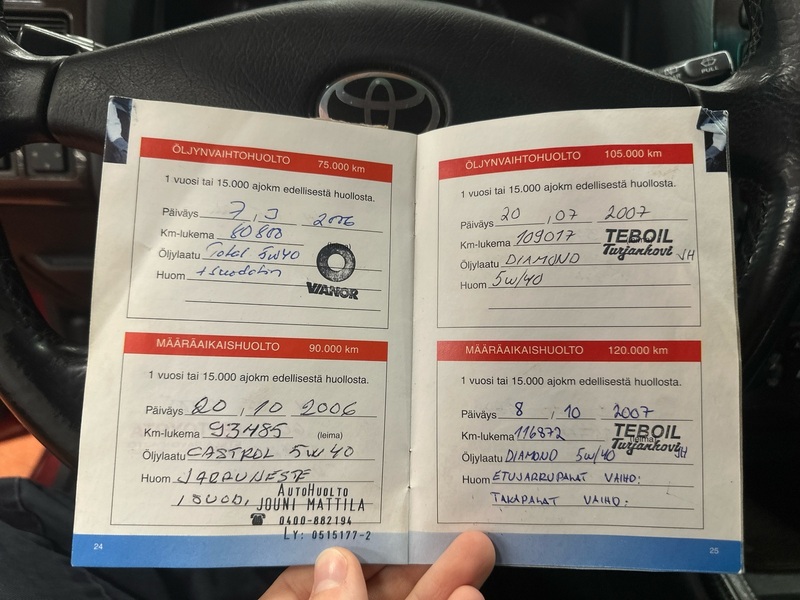 PULL
ÖLJYNVAIHTOHUOLTO 75.000 km
1 vuosi tai 15.000 ajokm edellisestä huollosta.
Päiväys 7 , 3 2006
Km-lukema 80800
Öljylaatu Total 5W40
Huom + suodatin
VIANOR
MÄÄRÄAIKAISHUOLTO 90.000 km
1 vuosi tai 15.000 ajokm edellisestä huollosta.
Päiväys 20 , 10 2006
Km-lukema 93485 (leima)
Öljylaatu CASTROL 5W40
Huom JARRUNESTE
, SUOD,
AUTOHUOLTO
JOUNI MATTILA
☎ 0400-882194
LY: 0515177-2
24
ÖLJYNVAIHTOHUOLTO 105.000 km
1 vuosi tai 15.000 ajokm edellisestä huollosta.
Päiväys 20 , 07 2007
Km-lukema 109017 TEBOIL
Turjankovi
Öljylaatu DIAMOND JH
Huom 5W/40
MÄÄRÄAIKAISHUOLTO 120.000 km
1 vuosi tai 15.000 ajokm edellisestä huollosta.
Päiväys 8 , 10 2007
Km-lukema 116872 TEBOIL
(leima)
Turjankovi
Öljylaatu DIAMOND 5W/40 JH
Huom ETUJARRUPALAT VAIHD:
TAKAPALAT VAIHD:
25